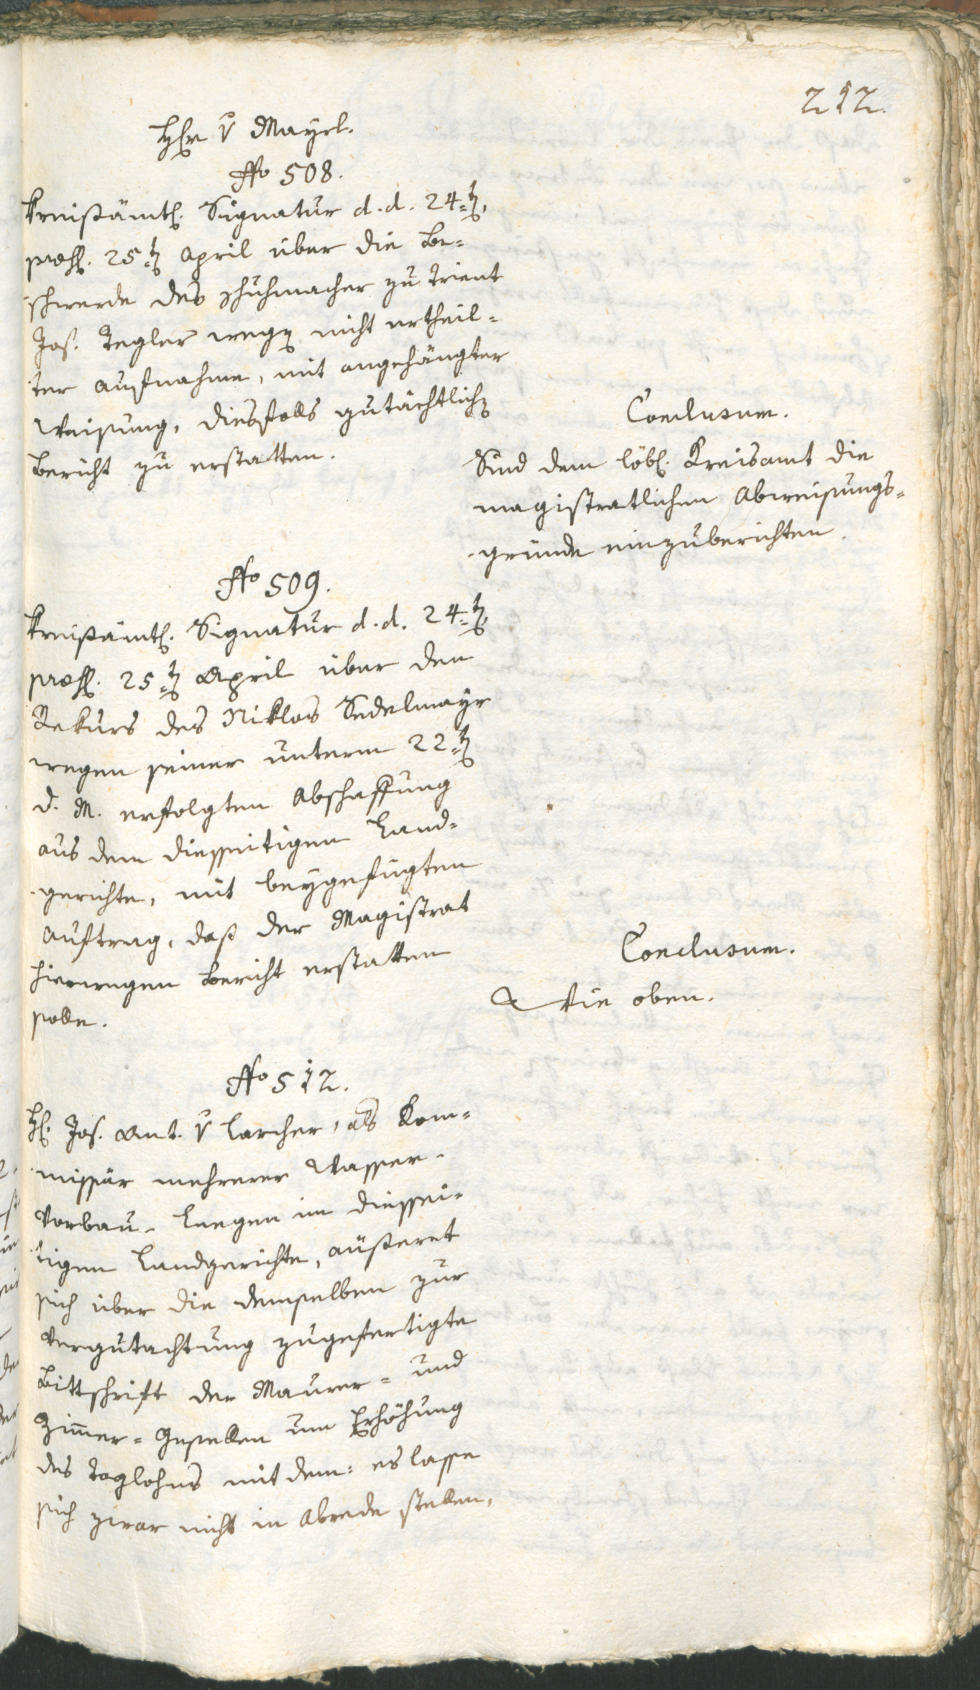 212.
H<sup>r</sup> v Mayrl.
No 508.
Kreißämtl. Signatur d. d. 24=t,
præs. 25=t April über die Be=
schwerde des Schuhmacher zu Trient
Jos. Tegler wegen nicht ertheil=
ter Aufnahme, mit angehängter
Weisung, diesfalls gutächtlichen
Bericht zu erstatten.
Conclusum.
Sind dem löbl. Kreisamt die
magistratlichen Abweisungs=
gründe einzuberichten.
No 509.
Kreißämtl. Signatur d. d. 24=t,
præs. 25=t April über den
Rekurs des Niklas Sedelmayr
wegen seiner unterm 22=t
d. M. erfolgten Abschaffung
aus dem diesseitigen Land=
gerichte, mit beygefügten
Auftrag, daß der Magistrat
hierwegen Bericht erstatten
solle.
Conclusum.
Wie oben.
No 512.
H. Jos. Ant. v Larcher, als Kom=
missär mehrerer Wasser=
Vorbau= Luegen im diessei=
tigen Landgerichte, äußeret
sich über die demselben zur
Vergutachtung zugefertigte
Bittschrift der Maurer= und
Zimmer=Gesellen um Erhöhung
des Taglohns mit dem: es lasse
sich zwar nicht in Abrede stellen,